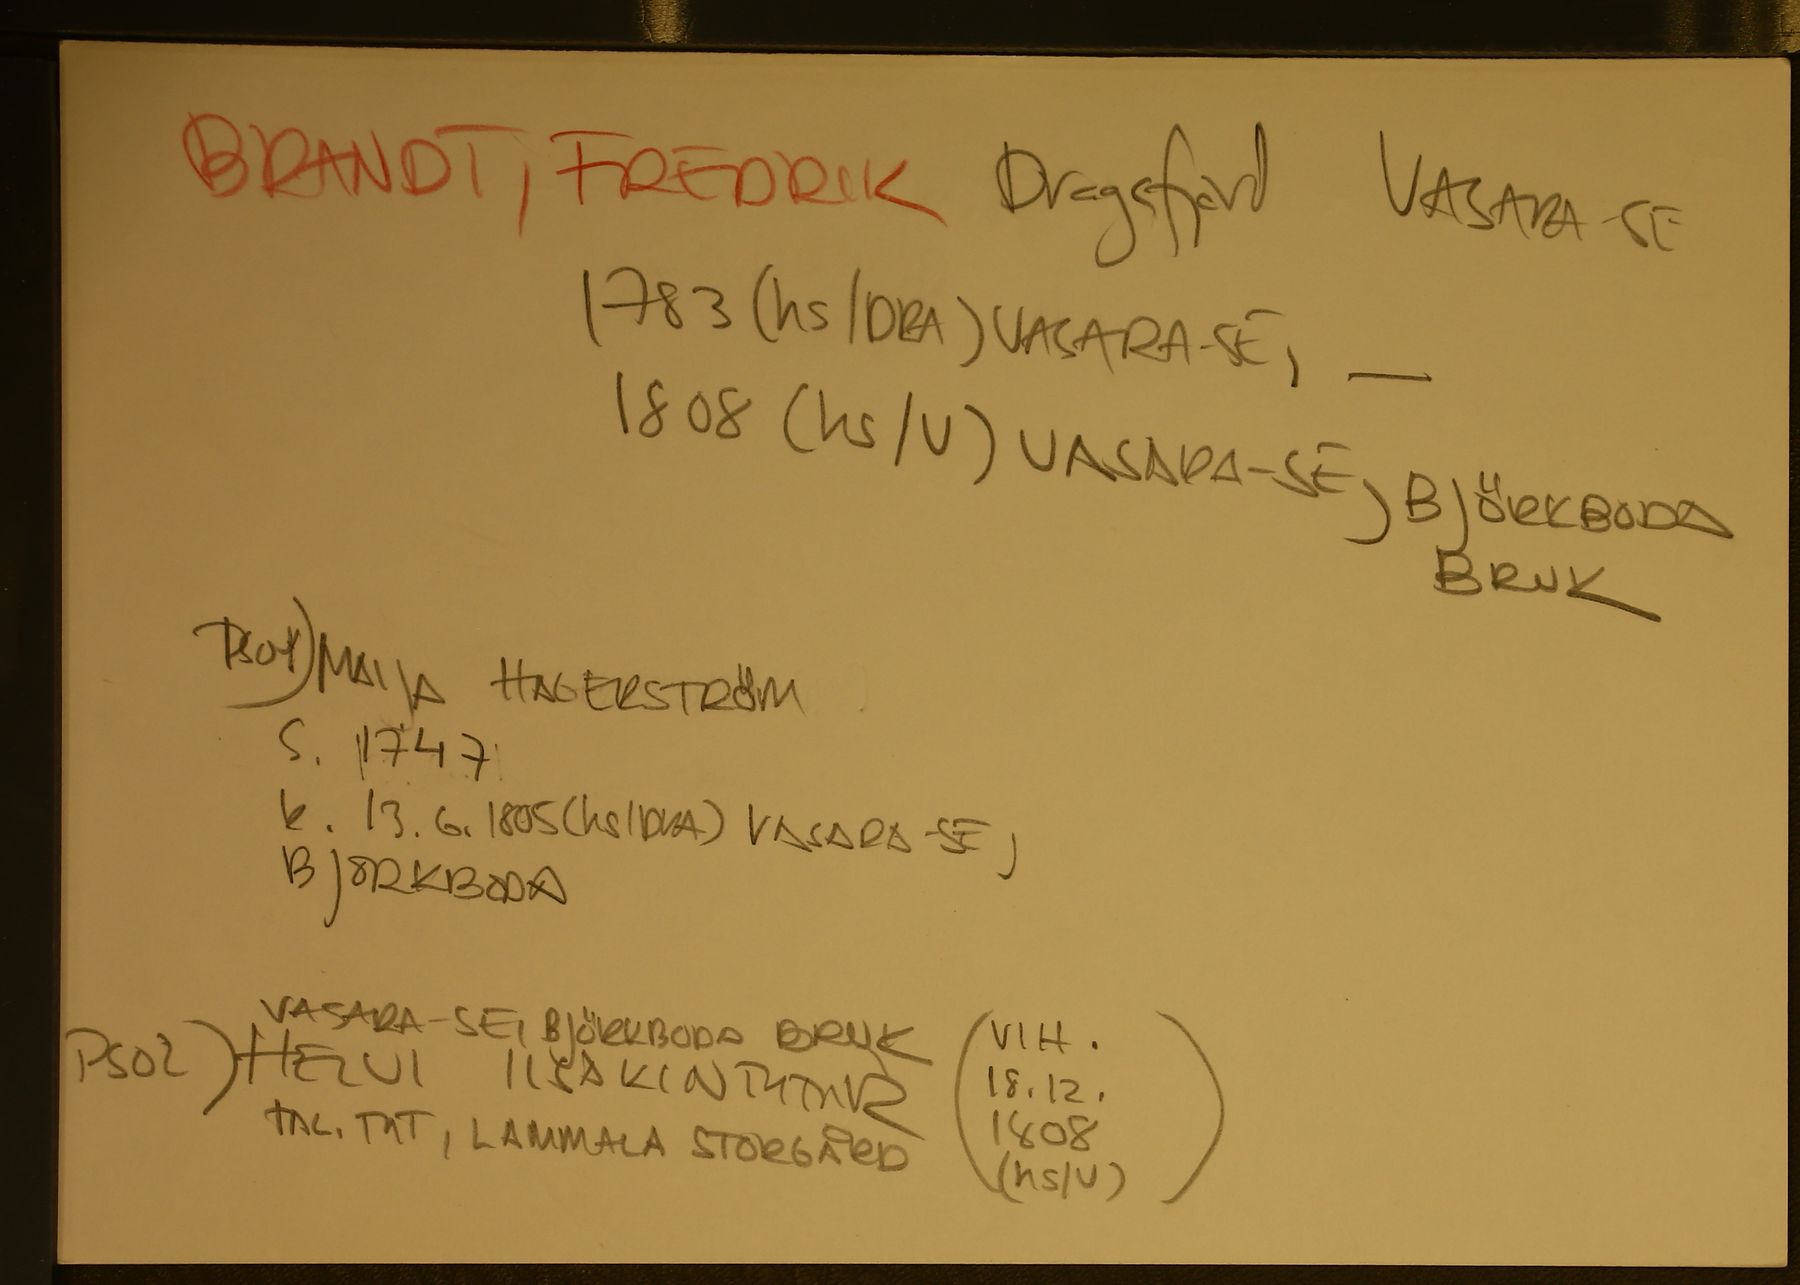 BRANDT, FREDRIK Dragsfjärd VASARA-SE
1783 (hs/DRA) VASARA-SE, —
1808 (hs/V) VASARA-SE, BJÖRKBODA
BRUK
PSO1) MAIJA HAGERSTRÖM
S. 1747
k. 13.6.1805 (hs/DRA) VASARA-SE,
BJÖRKBODA
VASARA-SE, BJÖRKBODA BRUK
PSO2) HELVI IISAKINTYTÄR
TAL. TYT, LAMMALA STORGÅRD
(VIH.
18.12.
1808
(hs/V))